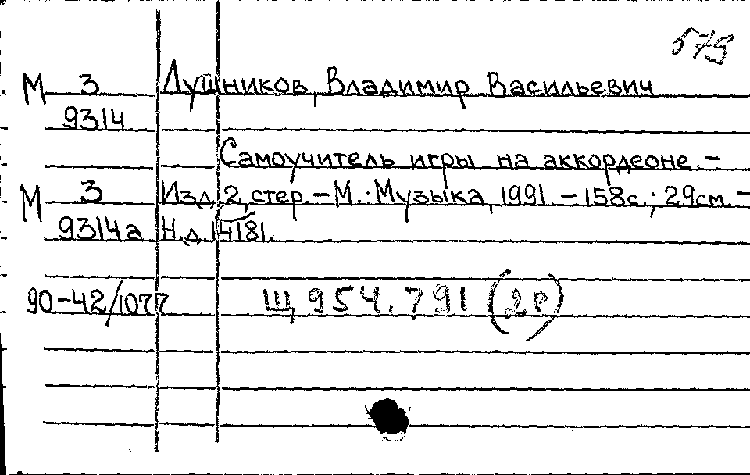 579
М 3 Лушников, Владимир Васильевич
9314
Самоучитель игры на аккордеоне. –
М 3 Изд. 2, стер. – М.: Музыка, 1991. – 158с.; 29см. –
9314а Н.д. 14181.
90-42/1077 Щ 954.791 (2р)